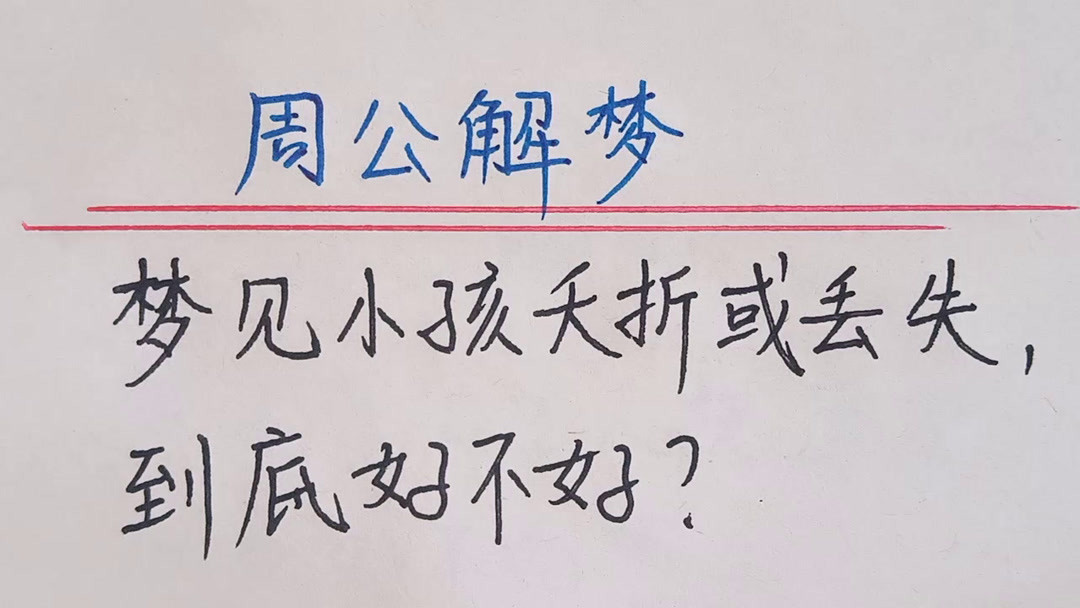 周公解梦
梦见小孩夭折或丢失,
到底好不好?